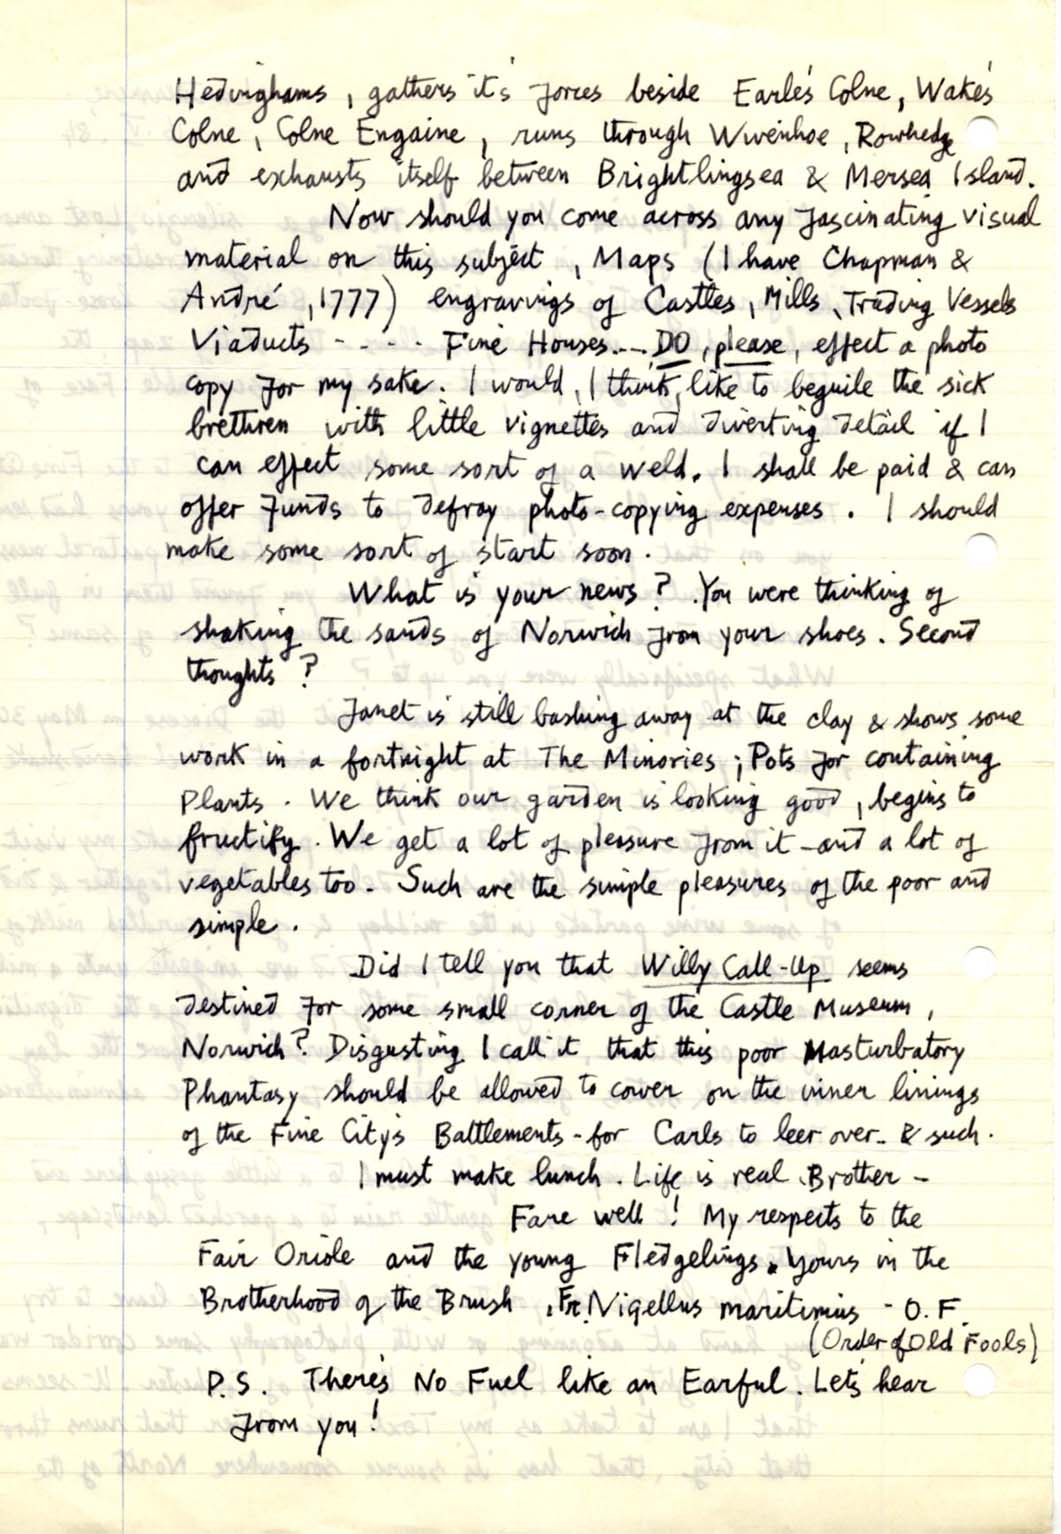 Hedinghams, gathers it's forces beside Earle's Colne, Wake's
Colne, Colne Engaine, runs through Wivenhoe, Rowhedge
and exhausts itself between Brightlingsea & Mersea Island.
Now should you come across any fascinating visual
material on this subject, Maps (I have Chapman &
André, 1777) engravings of Castles, Mills, Trading Vessels
Viaducts - - - - Fine Houses... DO, please, effect a photo
copy for my sake. I would, I think, like to beguile the sick
brethren with little vignettes and diverting detail if I
can effect some sort of a weld. I shall be paid & can
offer Funds to defray photo-copying expenses. I should
make some sort of start soon.
What is your news? You were thinking of
shaking the sands of Norwich from your shoes. Second
thoughts?
Janet is still bashing away at the clay & shows some
work in a fortnight at The Minories; Pots for containing
Plants. We think our garden is looking good, begins to
fructify. We get a lot of pleasure from it - and a lot of
vegetables too. Such are the simple pleasures of the poor and
simple.
Did I tell you that Willy Call-Up seems
destined for some small corner of the Castle Museum,
Norwich? Disgusting I call it that this poor Masturbatory
Phantasy should be allowed to cower on the inner linings
of the Fine City's Battlements - for Carls to leer over. & such.
I must make lunch. Life is real, Brother -
Fare well! My respects to the
Fair Oriole and the young Fledgelings. Yours in the
Brotherhood of the Brush, Fr. Nigellus maritimus - O.F.
(Order of Old Fools)
P.S. There's No Fuel like an Earful. Let's hear
from you!